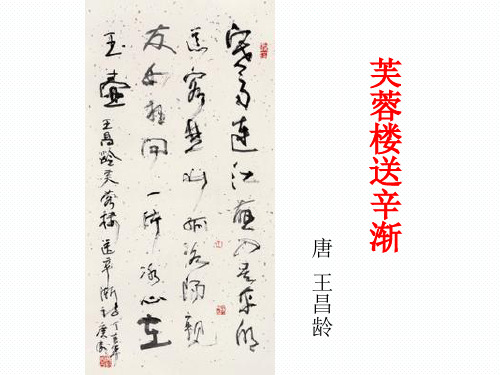 芙蓉楼送辛渐
唐 王昌龄
寒雨连江夜入吴平明
送客楚山孤洛阳亲
友如相问一片冰心在
玉壶 王昌龄芙蓉楼送辛渐